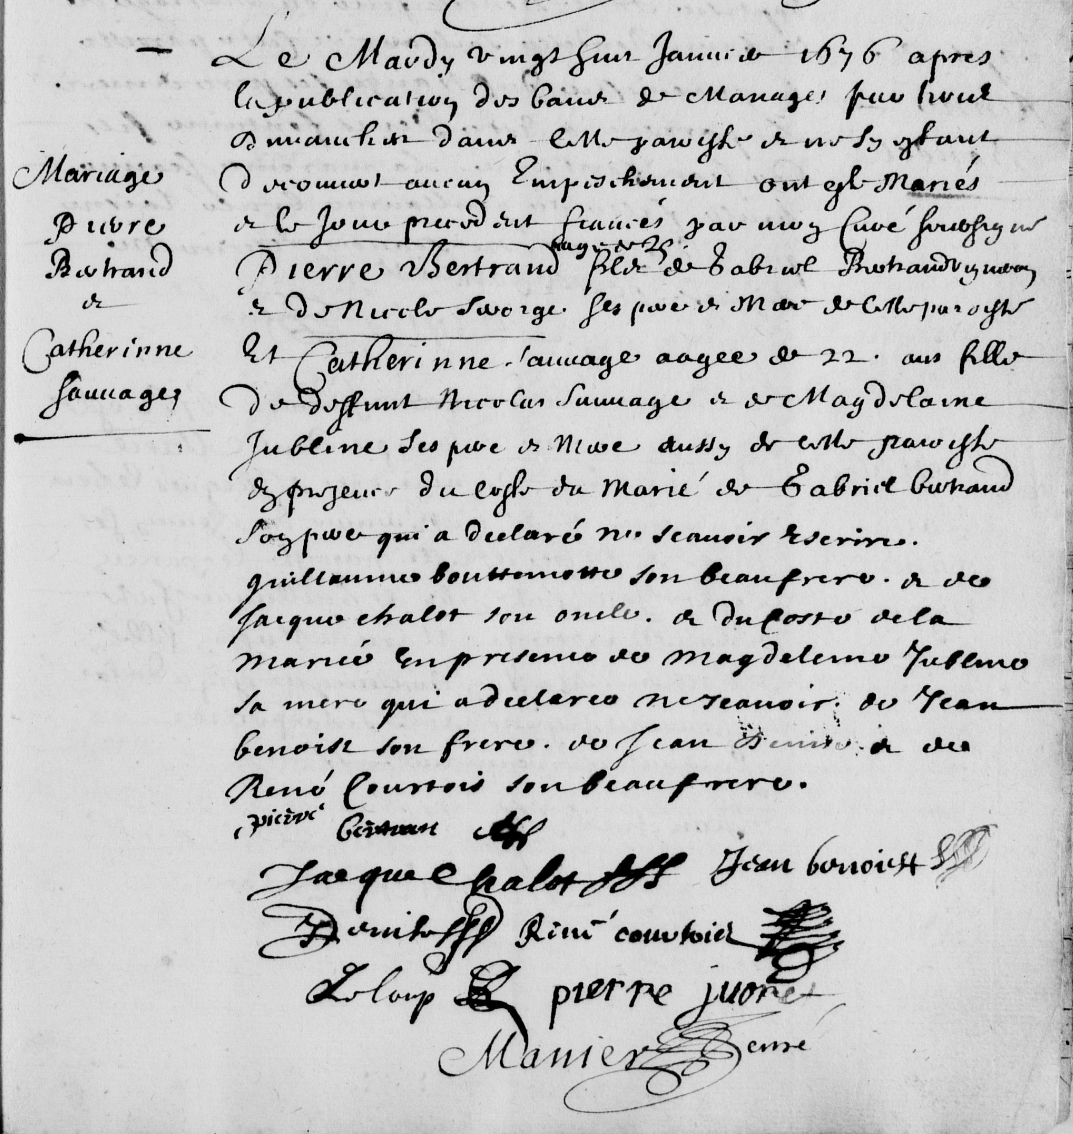 Le Mardy vingt huit Januier 1676 apres
la publication des bans de Mariages par trois
dimanches dans cette paroisse et ne sy estant
decouuert aucun Empeschement ont esté Mariés
et le Jour precedent fiancés par moy Curé soubsigné
aagé de 26
Pierre Bertrand fils de Gabriel Bertrand vigneron
et de Nicole George ses pere et Mere de cette paroisse
Et Catherinne Sauuage aagee de 22. ans fille
De deffunt Nicolas Sauuage et de Magdelaine
Jubline ses pere et Mere aussy de cette paroisse
En presence du costé du Marié de Gabriel Bertrand
son pere qui a declaré ne scauoir Escrire.
guillaume bouttemotte son beaufrere. et de
Jacque chalot son oncle. et du Costé de la
mariée En presence de magdelene Jubline
sa mere qui a declaree ne scauoir. de Jean
benoist son frere. de Jean et de
René Courtois son beaufrere.
Mariage
Pierre
Bertrand
et
Catherinne
Sauuage
pierre bertrant
Jacque Chalot Jean benoist
René courtois
Leloup pierre
Manier curé